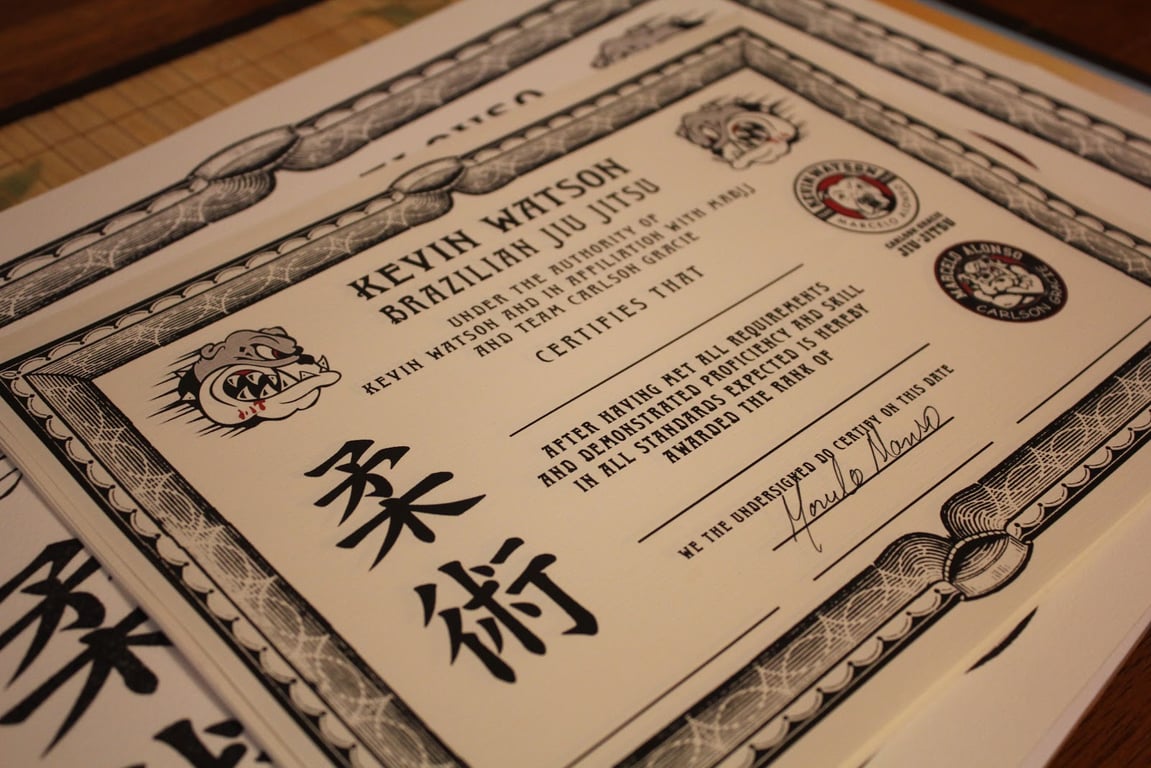 KEVIN WATSON
BRAZILIAN JIU JITSU
UNDER THE AUTHORITY OF
KEVIN WATSON AND IN AFFILIATION WITH MABJJ
AND TEAM CARLSON GRACIE
CERTIFIES THAT
AFTER HAVING MET ALL REQUIREMENTS
AND DEMONSTRATED PROFICIENCY AND SKILL
IN ALL STANDARDS EXPECTED IS HEREBY
AWARDED THE RANK OF
WE THE UNDERSIGNED DO CERTIFY ON THIS DATE
KEVIN WATSON
MARCELO ALONSO
CARLSON GRACIE
JIU JITSU
MARCELO ALONSO
CARLSON GRACIE
柔
術
柔